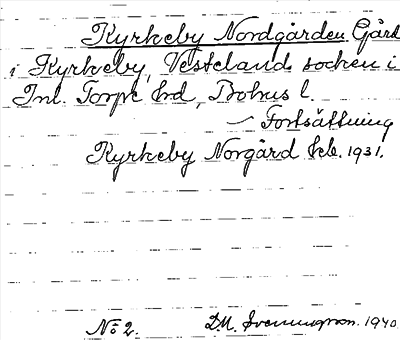 Kyrkeby Nordgården Gård
i Kyrkeby, Vesteland socken i
Inl. Torpe hd, Bohus l.
— Fortsättning
Kyrkeby Norgård kb. 1931.
No 2. D.M. Svenningson. 1940